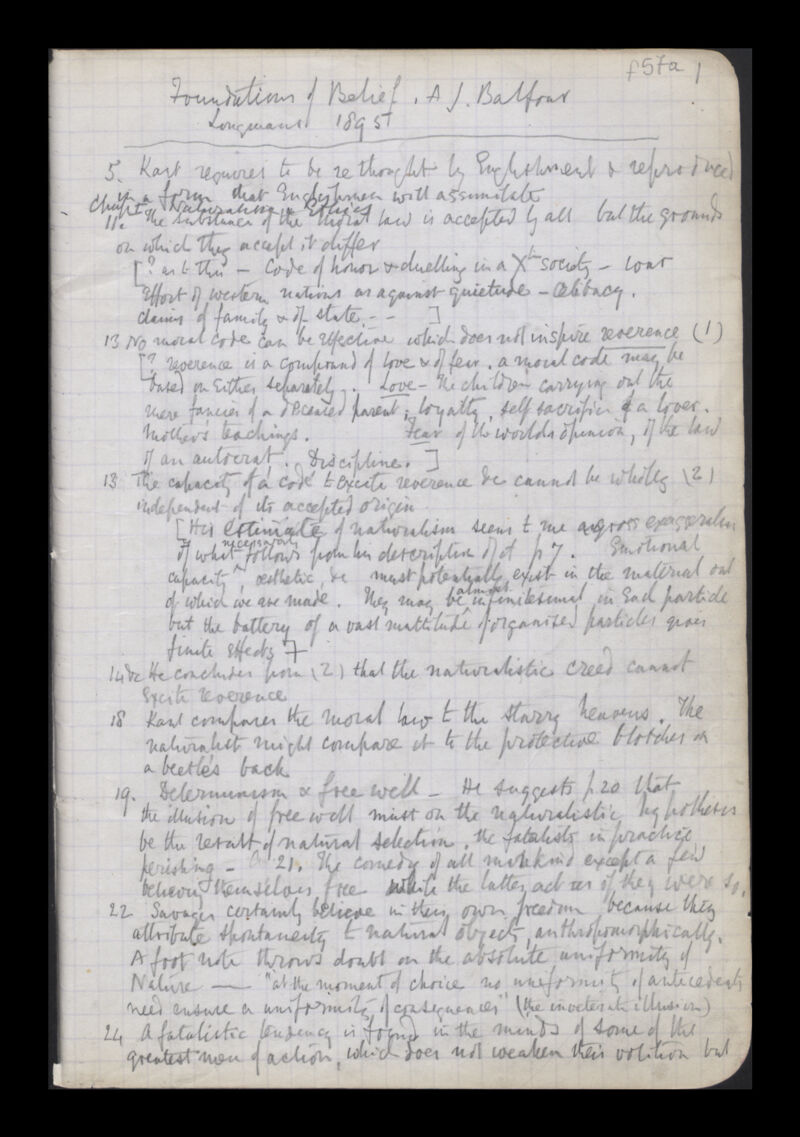 f57a 1
Foundations of Belief. A J. Balfour
Longmans 1895
5. Kant requires to be rethought by Englishmen & reproduced
in a form that Englishmen will assimilate
Chapt I Naturalism & Ethics
11. The substance of the moral law is accepted by all but the grounds
on which they accept it differ
[? as to this – Code of honor & duelling in a Xth society – War
Effort of western nations as against quietude – celibacy.
claims of family & of state. – – ]
13 No moral code can be effective which does not inspire reverence (1)
[? reverence is a compound of love & of fear. a moral code may be
based on Either separately. Love – the children carrying out the
mere fancies of a deceased parent; loyalty, self sacrifice of a lover.
Mother's teachings. Fear of the worlds opinion, of the law
of an autocrat. Discipline. ]
13 The capacity of a code to excite reverence &c cannot be wholly (2)
independent of its accepted origin
[His estimate of naturalism seems to me a gross exaggeration
of what necessarily follows from his description of it p 7. Emotional
capacity, aesthetic &c must potentially exist in the material out
of which we are made. They may be almost infinitesimal in Each particle
but the battery of a vast multitude of organised particles gives
finite effects]
14 &c He concludes from (2) that the naturalistic creed cannot
Excite reverence
18 Kant compares the moral law to the starry heavens. The
naturalist might compare it to the protective blotches on
a beetle's back
19. Determinism & free will – He suggests p 20 that
the illusion of free will must on the naturalistic hypothesis
be the result of natural selection, the fatalists in practice
perishing – 21. The comedy of all mankind except a few
believing themselves free while the latter act as if they were so.
22 Savages certainly believe in their own freedom because they
attribute spontaneity to natural objects, anthropomorphically.
A foot note throws doubt on the absolute uniformity of
Nature — "at the moment of choice no uniformity of antecedents
need ensure a uniformity of consequences" (the inveterate illusion)
24 A fatalistic tendency is found in the minds of some of the
greatest men of action, which does not weaken their volition but